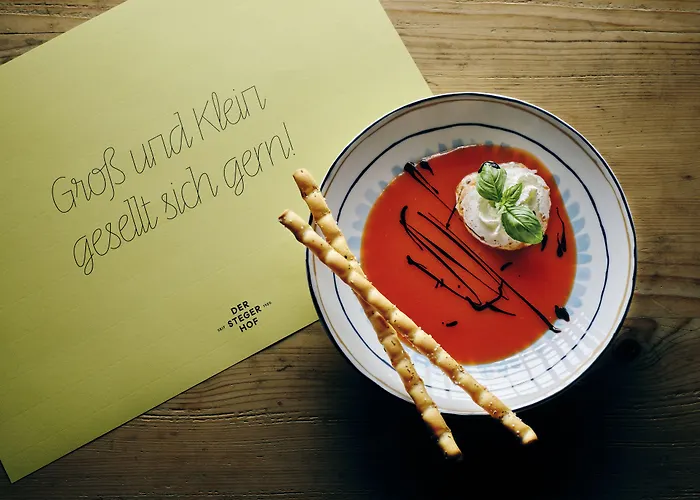 Groß und Klein
gesellt sich gern!
DER
SEIT STEGER 1985
HOF